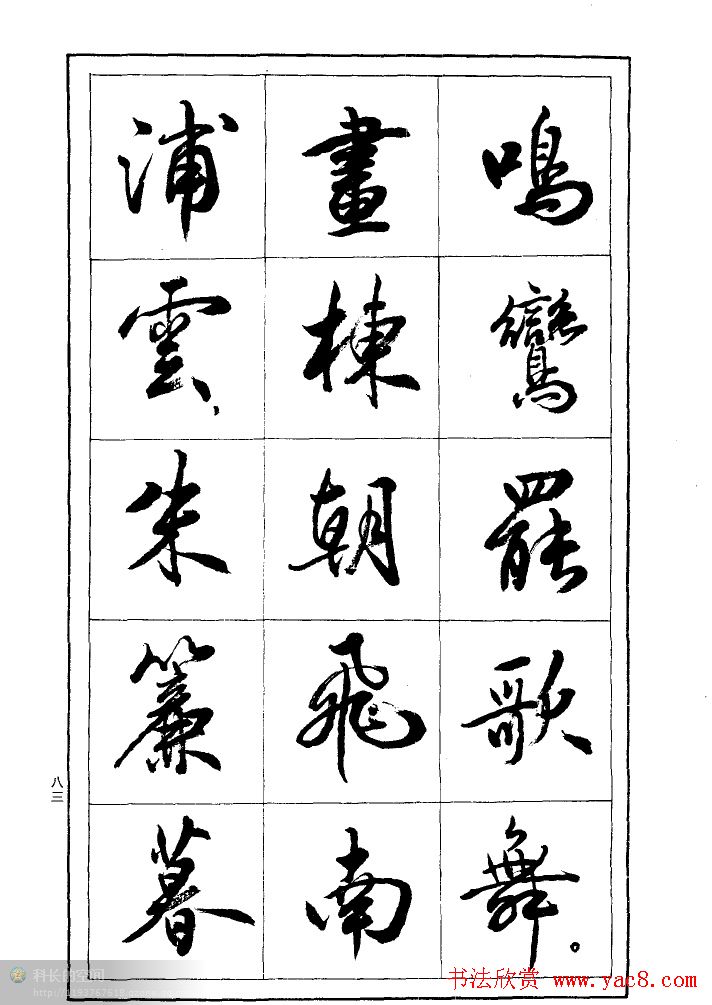 鳴鸞罷歌舞。
畫棟朝飛南
浦雲、朱簾暮
八三
科长的空间
书法欣赏 www.yac8.com